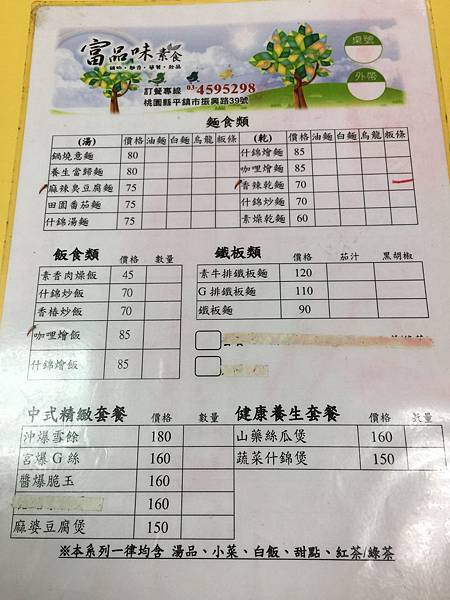 富品味 素食
鍋物・麵食・簡餐・飲品
訂餐專線 03-4595298
桃園縣平鎮市振興路39號
桌號
外帶
麵食類
(湯) 價格 油麵 白麵 烏龍 粄條 (乾) 價格 油麵 白麵 烏龍 粄條
鍋燒意麵 80 什錦燴麵 85
養生當歸麵 80 咖哩燴麵 85
麻辣臭豆腐麵 75 香辣乾麵 70
田園番茄麵 75 什錦炒麵 70
什錦湯麵 75 素燥乾麵 60
飯食類 價格 數量 鐵板類 價格 茄汁 黑胡椒
素香肉燥飯 45 素牛排鐵板麵 120
什錦炒飯 70 G排鐵板麵 110
香椿炒飯 70 鐵板麵 90
咖哩燴飯 85
什錦燴飯 85
中式精緻套餐 價格 數量 健康養生套餐 價格 數量
沖爆雪餘 180 山藥絲瓜煲 160
宮爆G絲 160 蔬菜什錦煲 150
醬爆脆玉 160
160
麻婆豆腐煲 150
※本系列一律均含 湯品、小菜、白飯、甜點、紅茶/綠茶